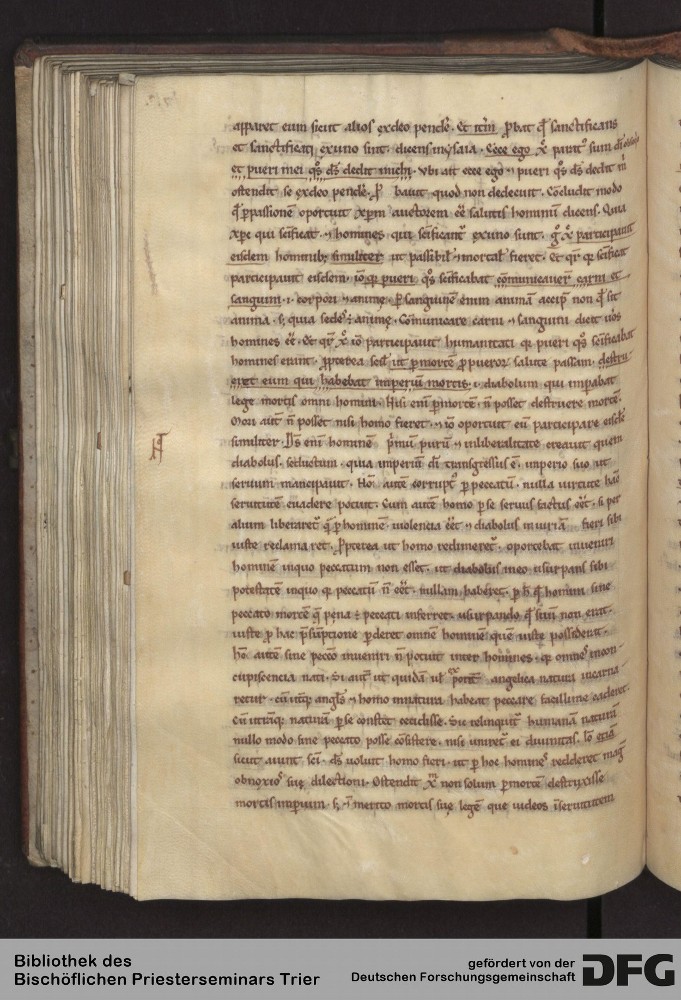 apparet eum sicut alios ex deo pendē. Et itm̄ ꝓbat qđ sanctificans
et sanctificati ex uno sint. dicens in ysaia. Ecce ego
et pueri mei qͦs dš dedit michi. Vbi ait ecce ego ⁊ pueri qͦs dš dedit m̄
ostendit se ex deo pendē. quod non dedecuit. Cōcludit modo
qđ ꝑ passionē oportuit xp̄m auctorem eē̄ salutis hominū dicens. Quia
xp̄c qui sc̄ificat. ⁊ homines qui sc̄ificant᷑ ex uno sunt. participauit
eisdem hominib; similiter ut passibil᷑ ⁊ mortal᷑ fieret. Et qͥ sc̄ificat
participauit eisdem. iō q̄ pueri qͦs sc̄ificabat cōmunicauer̄ carni et
sanguini .i. corpori ⁊ animę. ꝑ sanguinē enim animā accip̄ non qđ sit
anima. s; quia sedes ÷ animę. Cōmunicare carni ⁊ sanguini dicit uōs
homines eē̄. Et iō participauit humanitati q̄ pueri qͦs sc̄ificabat
homines erunt. ꝓpterea ut ꝑ mortē ꝓ pueroꝝ salute passam. destru
eret eum qui habebat imperiū mortis .i. diabolum qui impabat
lege mortis omni homini. Nisi enī ꝑ mortē. n̄ posset destruere mortē.
Mori aut̄ n̄ posset nisi homo fieret. ⁊ iō oportuit eū participare eisdē
similiter. Dš enī hominē primū purū ⁊ in liberalitate creauit quem
diabolus. seductum. quia imperiū di transgressus ē. imperio suo ut
seruum mancipauit. Hoī autē corrupto ꝑ peccatū. nulla uirtute hāc
seruitutē euadere potuit. Cum autē homo ꝑ se seruus factus eēt. si per
alium liberaret᷑ q̄ ꝑ hominē. uiolencia eēt ⁊ diabolus iniuriā fieri sibi
iuste reclamaret. ꝓpterea ut homo redimeret᷑. oportebat inueniri
hominē in quo peccatum non esset. ut diabolus in eo usurpans sibi
potestatē in quo peccatū n̄ eēt. nullam haberet. ꝑ h̄ qđ homini sine
peccato mortē q̄ pena ÷ peccati inferret. usurpando qđ suū non erat.
iuste ꝓ hac p̄sūptione ꝑderet omnē hominē quē iuste possidebat.
hō autē sine pecc̄o inueniri n̄ potuit inter homines. omnes in con
cupiscencia nati. Si aut̄ ut quidā angelica natura incarna
retur. cū itaq; angls̄ ⁊ homo in natura habeat peccare facillime caderet.
Cū utramq; naturā ꝑ se constet cecidisse. Sic relinquit᷑ humanā naturā
nullo modo sine peccato posse cōsistere. nisi uniret᷑ ei diuinitas. Iō etiā
sicut aiunt sc̄i. dš uoluit homo fieri. ut ꝑ hoc homines redderet mag̅
obnoxios suę dilectioni. Ostendit non solum ꝑ mortē destruxisse
mortis imperium s; ⁊ merito mortis suę legē que iudeos in seruitutem
Bibliothek des
Bischöflichen Priesterseminars Trier
gefördert von der
Deutschen Forschungsgemeinschaft
DFG